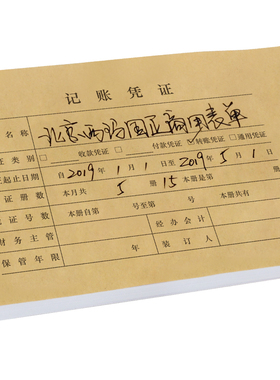 记账凭证
名称 北京西玛国正商用表单
证类别 □ 收款凭证 □ 付款凭证 ☑转账凭证 □通用凭证
起止日期 自2019年1月1日至2019年5月1日
证册数 本月共 5 册 15 本册是第
证号数 本册自第 号至第 号 本册共有
财务主管 经办会计
保管年限 装订人